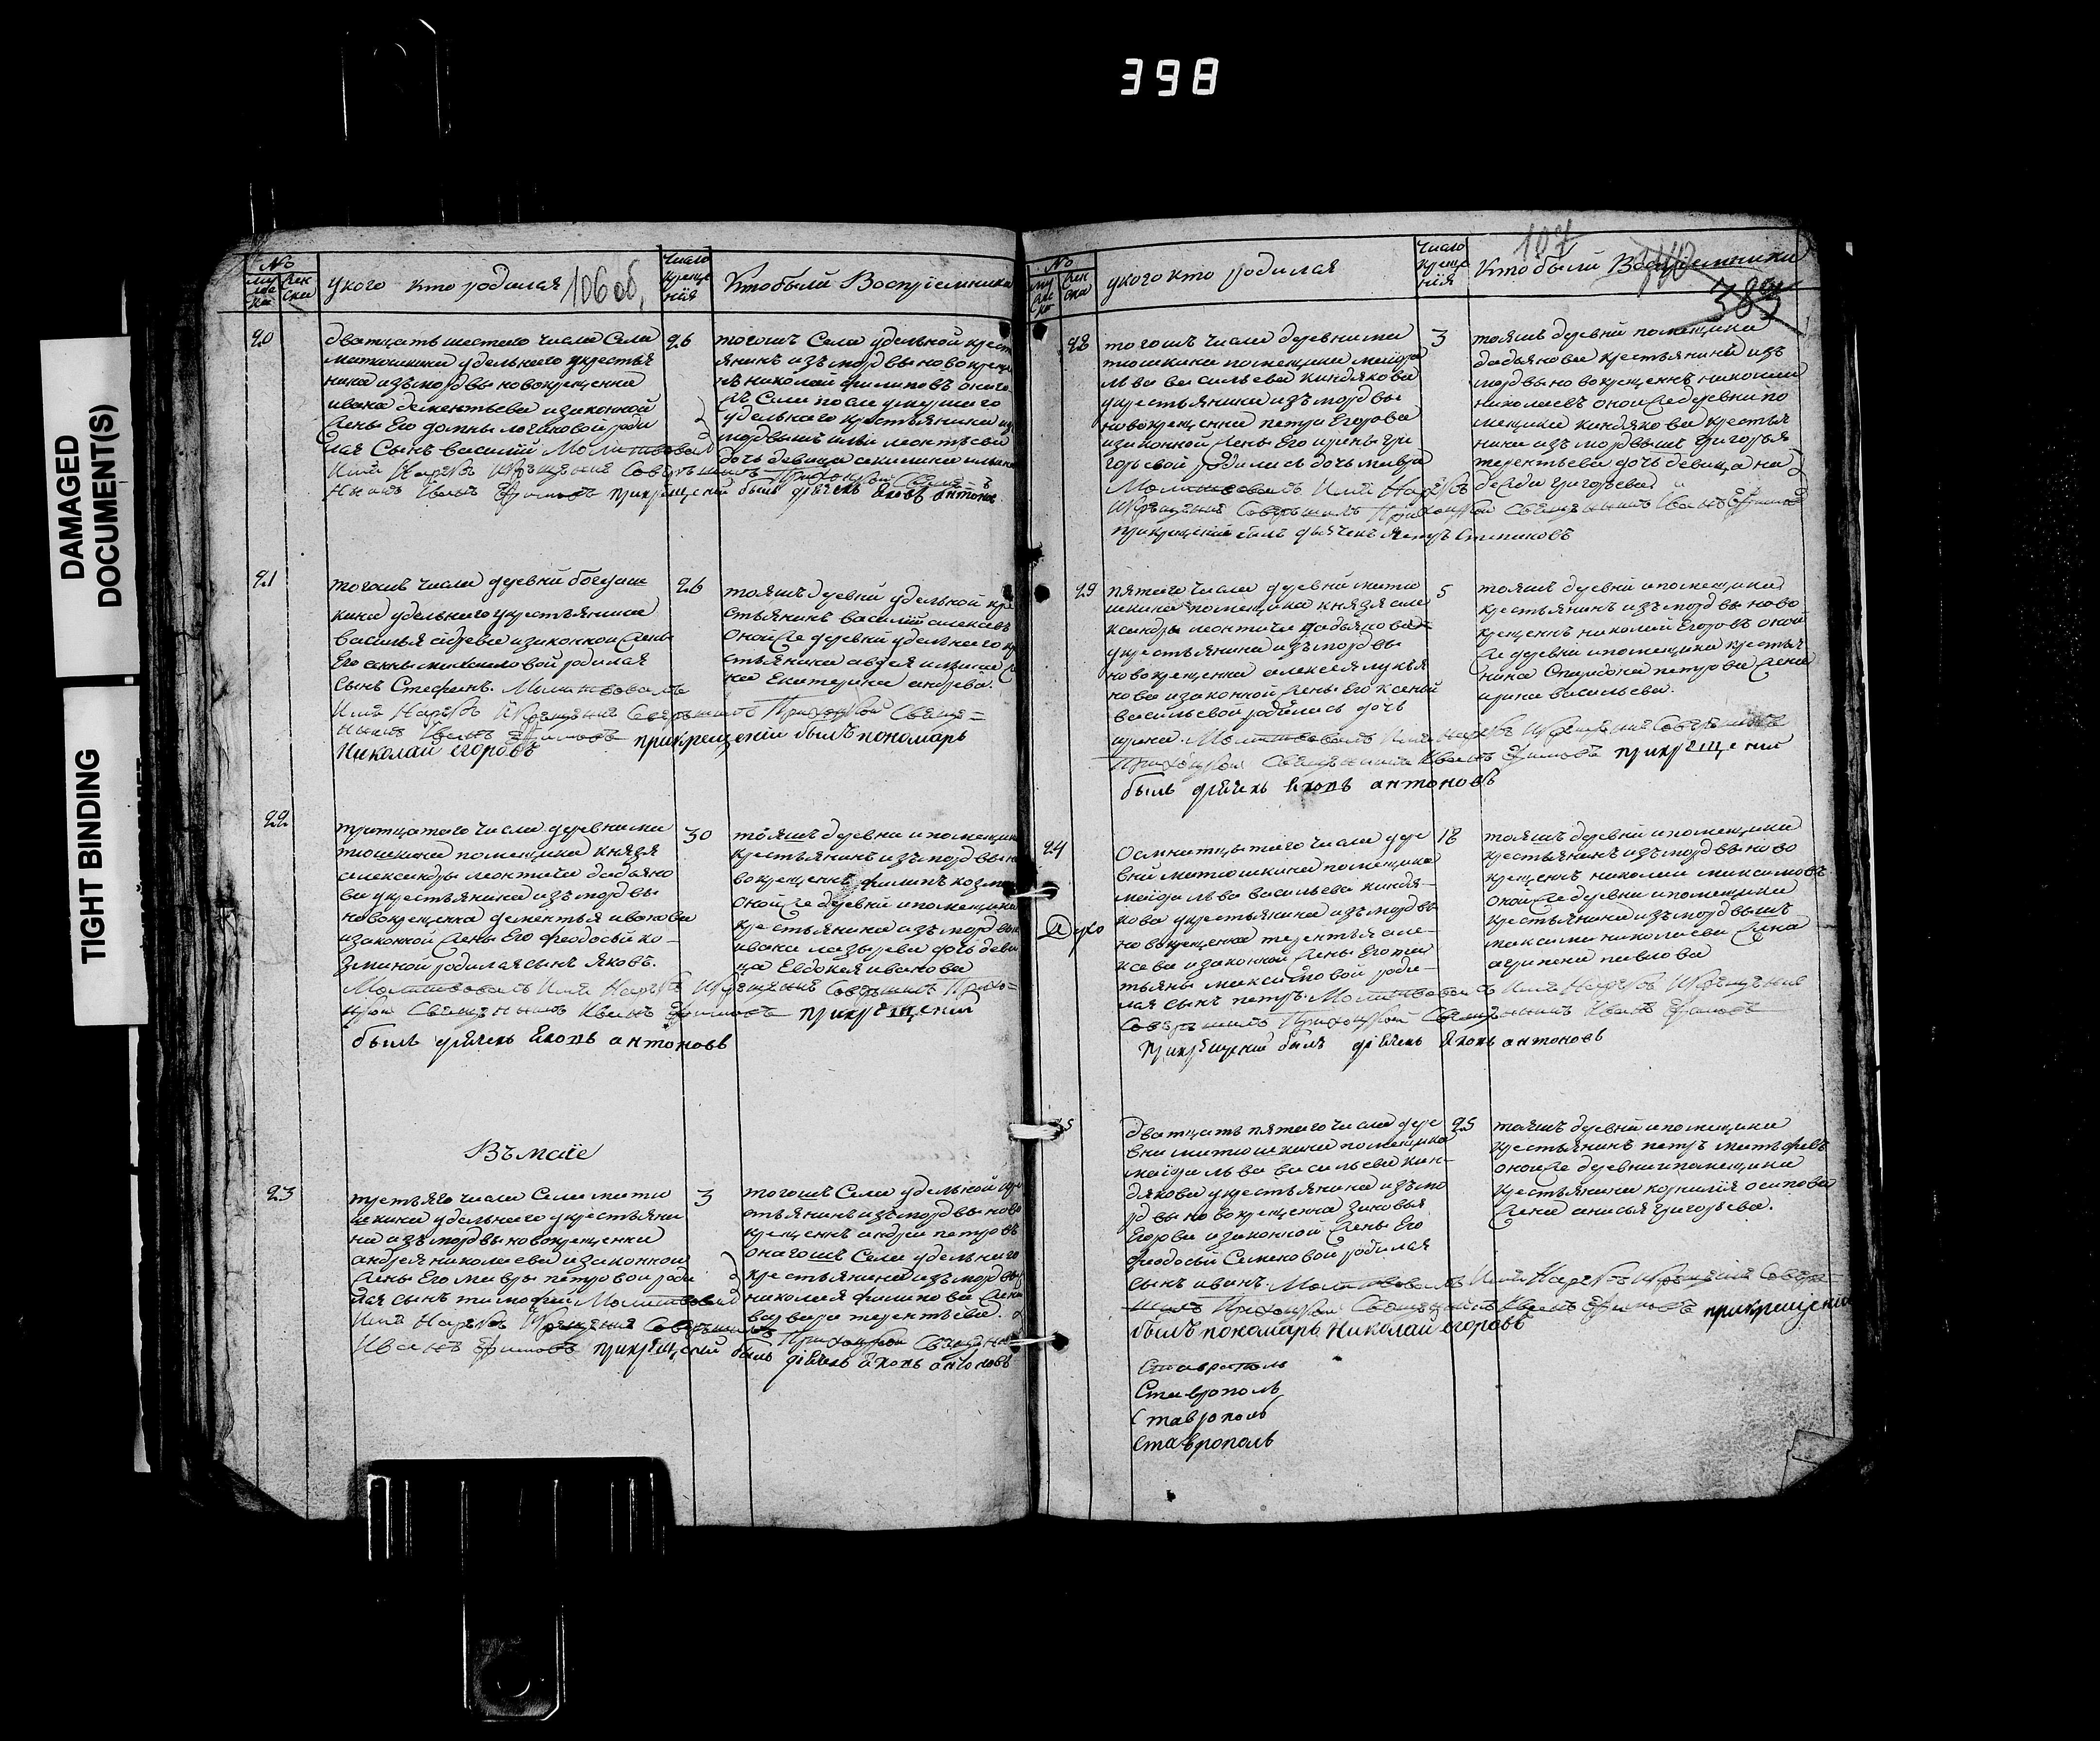 398
DAMAGED
DOCUMENT(S)
TIGHT BINDING
№
муже
ска
жен
ски
укого кто родился
106 об.
Число
креще
нїя
Кто были Восприемники
20
дватцать шестаго числа Села
матюшкина удельнаго укрестья
нина изъ мордвы новокрещенна
ивана дементьева изаконной
жены Его домны логиновой роди
лся Сынъ василий Молитвовалъ
Имя Нарѣкъ Икрещение Совершилъ Приходской Свяще=
нникъ Иванъ Ефимовъ прикрещенїи былъ дѣячекъ Яковъ антоновъ
26
тогожъ Села удельной крест
янинъ изъ мордвы новокреще
нъ николай филиповъ онаго
жъ Села после умершаго
удельнаго крестьянина из
мордвы ильи леонтьева
дочь девица акилина ильина
21
тогожъ числа деревни богдаш
кина удельнаго укрестьянина
василья изаконной жены
Его анны михаиловой родился
Сынъ Стефанъ. Молитвовалъ
Имя Нарѣкъ Икрещение Совершилъ Приходской Свяще=
нникъ Иванъ Ефимовъ прикрещенїи былъ пономарь
Николай егоровъ
26
тояжъ деревни удельной кре
стьянинъ василий алексевъ
оной же деревни удельнаго кр
стьянина авдея жe
на Екатерина андрева.
22
тритцатаго числа деревни ма
тюшкина помещика князя
александры леонтича дадьяно
ва укрестьянина изъ мордвы
новокрещенна дементья иванова
изаконной жены Его феодосьи ко=
зминой родился сынъ яковъ.
Молитвовалъ Имя Нарѣкъ Икрещение Совершилъ Прихо=
цкой Священникъ Иванъ Ефимовъ прикрещенїи
былъ дѣячекъ Яковъ антоновъ
30
тояжъ деревни и помещика
крестьянинъ изъ мордвы н
вокрещеннъ филипъ козми
оной же деревни и помещика
крестьянина изъ мордвы
ивана лазырева дочь деви
ца Евдокея иванова
Въ маїе
23
третьяго числа Села матю
шкина удельнаго укрестьяни
на изъ мордвы новокрещенна
андрея николаева изаконной
жены Его мавры петровой роди
лся сынъ тимофей Молитвовалъ
Имя Нарѣкъ Икрещение Совершилъ Приходской Священни
Иванъ Ефимовъ прикрещенїи былъ дѣячекъ Яковъ антоновъ
3
тогожъ Села удельной кре
стьянинъ изъ мордвы ново
крещеннъ андрей петровъ
онагожъ Села удельнаго
крестьянина изъ мордвы
николая филипова жена
варвара терентьева.
№
муж
ска
жен
ска
укого кто родился
Число
креще
нїя
107
Кто были Восприемники
383
22
тогожъ числа деревни ма
тюшкина помещика маиора
льва васильева киндякова
укрестьянина изъ мордвы
новокрещенна петра Егорова
изаконной жены Его ирины гри
горьевой родилась дочь мавра
Молитвовалъ Имя Нарѣкъ
Икрещение Совершилъ Приходской Священникъ Иванъ Ефимовъ
прикрещенїи былъ дьячекъ Петръ Степановъ
3
тояжъ деревни помещика
дадьянова крестьянинъ изъ
мордвы новокрещеннъ николай
николаевъ оной же деревни по
мещика киндякова крестья
нина изъ мордвы григорья
терентьева дочь девица на
дежда григорьева
23
пятаго числа деревни матю
шкина помещика князя але
ксандры леонтича дадьянова
укрестьянина изъ мордвы
новокрещенна алексея лукья
нова изаконной жены Его ксеньи
васильевой родилась дочь
ирина Молитвовалъ Имя Нарѣкъ Икрещение Совершилъ
Приходской Священникъ Иванъ Ефимовъ прикрещенїи
былъ дѣячекъ Яковъ антоновъ
5
тояжъ деревни и помещика
крестьянинъ изъ мордвы ново
крещеннъ николай Егоровъ оной
же деревни и помещика крестья
нина Спиридона петрова жена
ирина васильева.
24
Осмнатцатаго числа дере
вни матюшкина помещика
маиора льва васильева киндя=
кова укрестьянина изъ мордвы
новокрещенна терентья але=
ксева изаконной жены Его та
тьяны максимовой роди=
лся сынъ петръ. Молитвовалъ Имя Нарѣкъ Икрещение
Совершилъ Приходской Священникъ Иванъ Ефимовъ
прикрещенїи былъ дѣячекъ Яковъ антоновъ
18
тояжъ деревни и помещика
крестьянинъ изъ мордвы ново
крещеннъ николай максимовъ
оной же деревни и помещика
крестьянина изъ мордвы
максима николаева жена
агрипена павлова
25
дватцать пятаго числа дере
вни матюшкина помещика
маиора льва васильева кин=
дякова укрестьянина изъ мо
рдвы новокрещенна зиновья
Егорова изаконной жены Его
феодосьи Семеновой родился
сынъ иванъ. Молитвовалъ Имя Нарѣкъ Икрещение Совер=
шилъ Приходской Священникъ Иванъ Ефимовъ прикрещенїи
былъ пономарь Николай егоровъ
25
тояжъ деревни и помещика
крестьянинъ петръ матфевъ
оной же деревни и помещика
крестьянина корнилїя осипова
жена анисья григорьева.
Ставрополь
Ставрополь
Ставрополь
Ставрополь